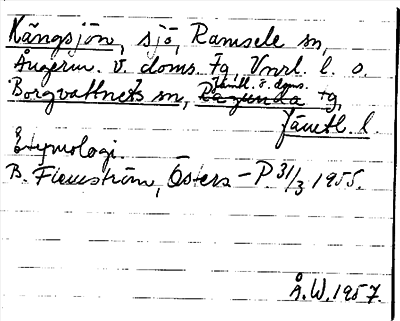 Kängsjön, sjö, Ramsele sn,
Ångerm. v. doms. tg, Vnrl. l. o.
Jämtl. ö. doms.
Borgvattnets sn, Ragunda tg,
Jämtl. l.
Etymologi.
B. Flemström, Östers.-P. 31/3 1955.
Å.W. 1957.